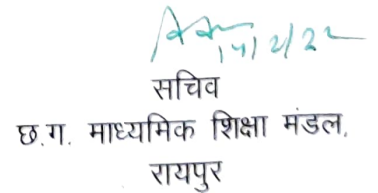 14/2/22
सचिव
छ.ग. माध्यमिक शिक्षा मंडल,
रायपुर